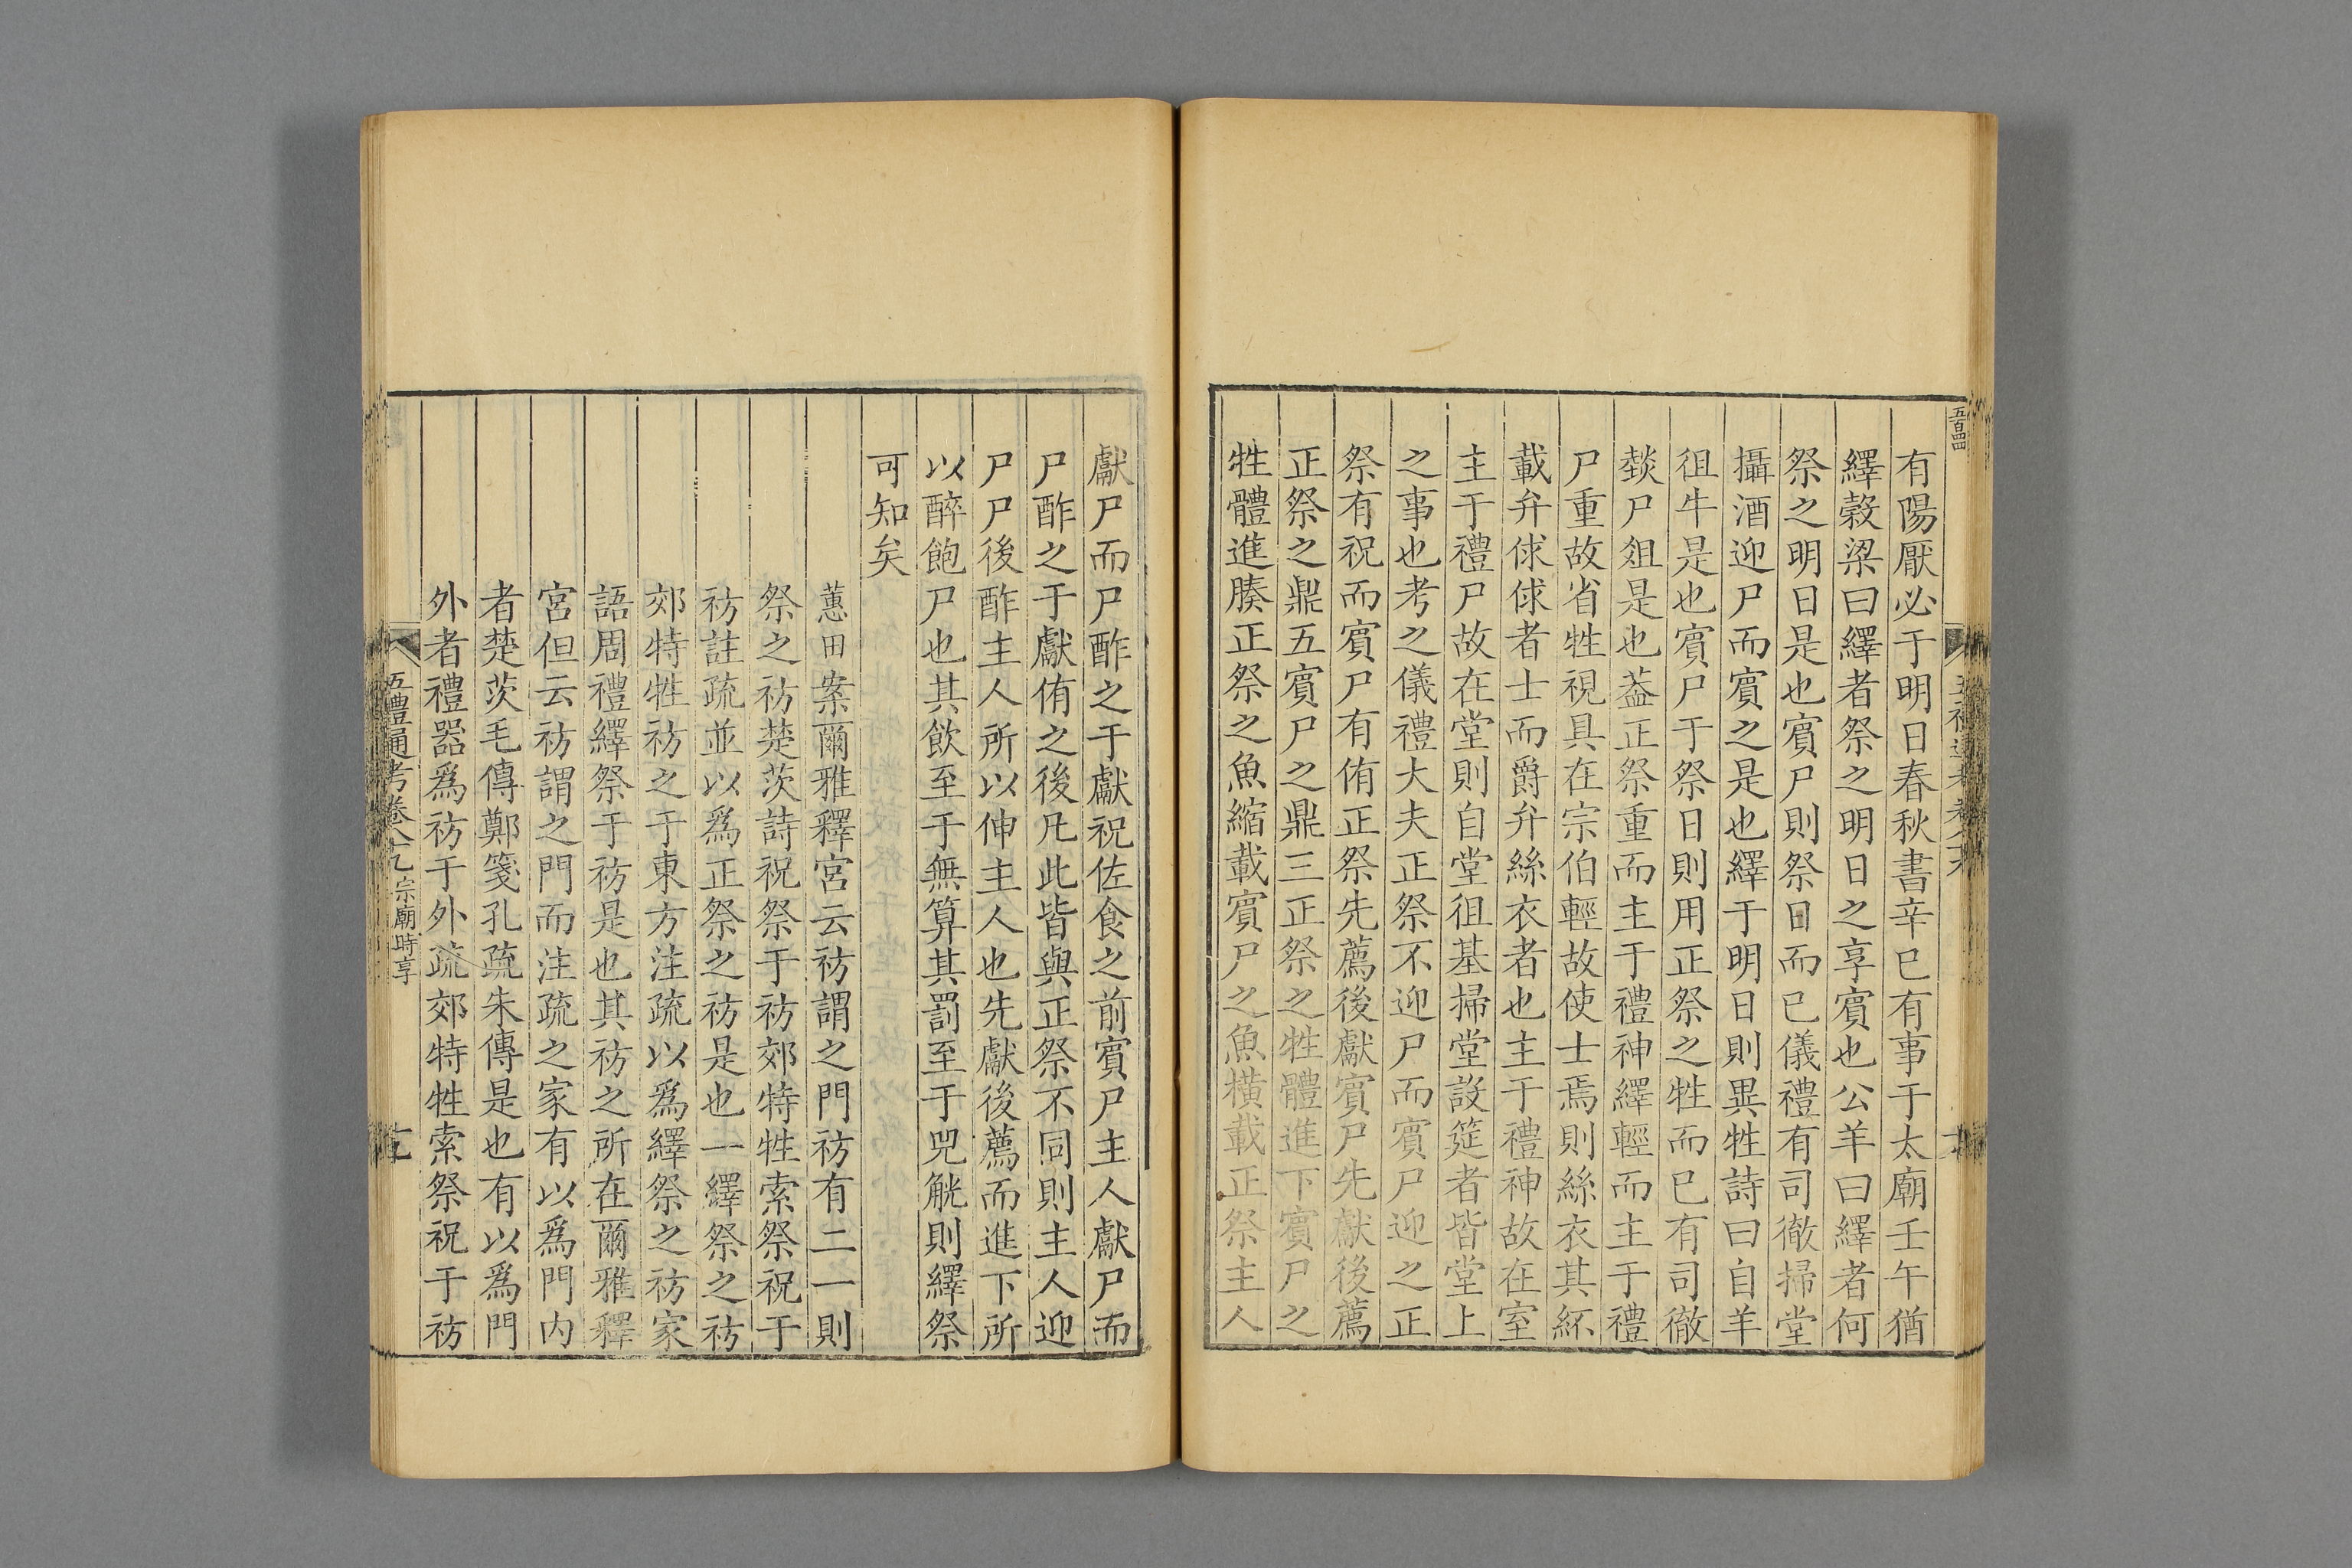 五百四四
有陽厭必于明日春秋書辛巳有事于太廟壬午猶
繹穀梁曰繹者祭之明日之享賓也公羊曰繹者何
祭之明日是也賓尸則祭日而已儀禮有司徹掃堂
攝酒迎尸而賓之是也繹于明日則異牲詩曰自羊
徂牛是也賓尸于祭日則用正祭之牲而已有司徹
燅尸俎是也葢正祭重而主于禮神繹輕而主于禮
尸重故省牲視具在宗伯輕故使士焉則絲衣其紑
載弁俅俅者士而爵弁絲衣者也主于禮神故在室
主于禮尸故在堂則自堂徂基掃堂設筵者皆堂上
之事也考之儀禮大夫正祭不迎尸而賓尸迎之正
祭有祝而賓尸有侑正祭先薦後獻賓尸先獻後薦
正祭之鼎五賓尸之鼎三正祭之牲體進下賓尸之
牲體進腠正祭之魚縮載賓尸之魚橫載正祭主人
獻尸而尸酢之于獻祝佐食之前賓尸主人獻尸而
尸酢之于獻侑之後凡此皆與正祭不同則主人迎
尸尸後酢主人所以伸主人也先獻後薦而進下所
以醉飽尸也其飲至于無算其罰至于兕觥則繹祭
可知矣
蕙田案爾雅釋宮云祊謂之門祊有二一則
祭之祊楚茨詩祝祭于祊郊特牲索祭祝于
祊註疏並以爲正祭之祊是也一繹祭之祊
郊特牲祊之于東方注疏以爲繹祭之祊家
語周禮繹祭于祊是也其祊之所在爾雅釋
宮但云祊謂之門而注疏之家有以爲門內
者楚茨毛傳鄭箋孔疏朱傳是也有以爲門
外者禮器爲祊于外疏郊特牲索祭祝于祊
五禮通考卷八十九 宗廟時享